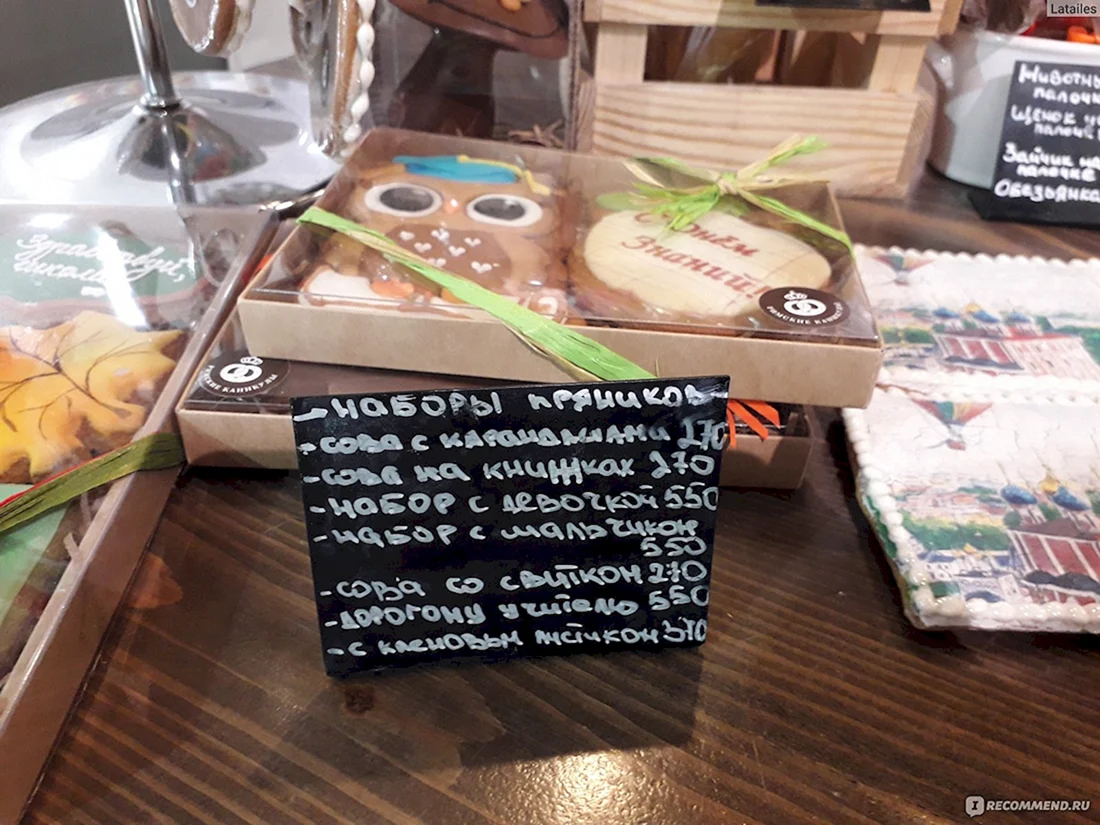 Latailes
Животны
палочк
Щенок
палочк
Зайчик на
палочке
Обезьянка
Здравствуй,
школа
С Днём
Знаний!
РИМСКИЕ КАНИКУЛЫ
РИМСКИЕ КАНИКУЛЫ
НАБОРЫ ПРЯНИКОВ
-СОВА С КАРАНДАШАМИ 270
-СОВА НА КНИЖКАХ 270
-НАБОР С ДЕВОЧКОЙ 550
-НАБОР С МАЛЬЧИКОМ
550
-СОВА СО СВИТКОМ 270
-ДОРОГОМУ УЧИТЕЛЮ 550
-С КЛЕНОВЫМ ЛИСТИКОМ 370
IRECOMMEND.RU